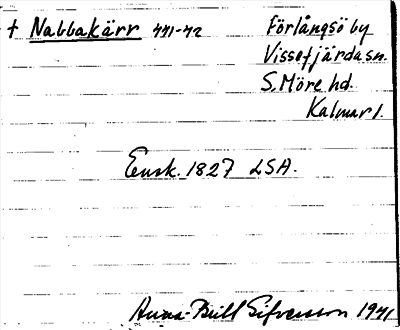 † Nabbakärr 441-42 Förlångsö by
Vissefjärda sn.
S. Möre hd.
Kalmar l.
Ensk. 1827 LSA.
Anna-Britt Sifversson 1941